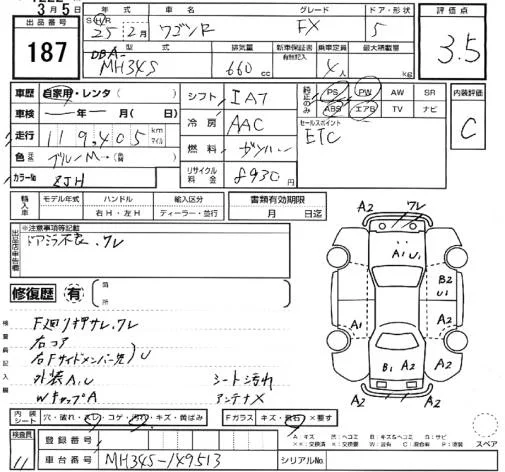 3月5日
出品番号
187
年式 車名 グレード ドア・形状
S H R 25年2月 ワゴンR FX 5
型式 排気量 新車保証書 有無記入 乗車定員 最大積載量
DBA-MH34S 660cc 4人 kg
評価点
3.5
車歴 自家用・レンタ( )
車検 ー年ー月( 日)
走行 119,405 km マイル
色 ブルーM
カラーNo ZJH
シフト IAT
冷房 AAC
燃料 ガソリン
リサイクル料金 8930円
純正のみ PS PW AW SR
ABS エアB TV ナビ
セールスポイント
ETC
内装評価
C
輸入車 モデル年式 ハンドル 輸入区分
年 右H・左H ディーラー・並行
書類有効期限
月 日迄
出品店申告欄
※注意事項等記載
ドアミラー不良、ワレ
修復歴 有 箇所
検査員記入欄
F廻り押サレ、ワレ
右コア
右Fサイドメンバー先 U
外装A,U シート汚れ
WキャップA アンテナX
A2 ワレ
A1 U1
B2
U1
A1
A2
B1 A2
A2
A2 A2
内装シート 穴・破れ・スレ・コゲ・汚れ・キズ・黄ばみ
Fガラス キズ・飛石・×要す
A:キズ 凹:ヘコミ B:キズ&ヘコミ G:サビ
スペア
検査員
11
登録番号
車台番号 MH34S-149513
シリアルNo.